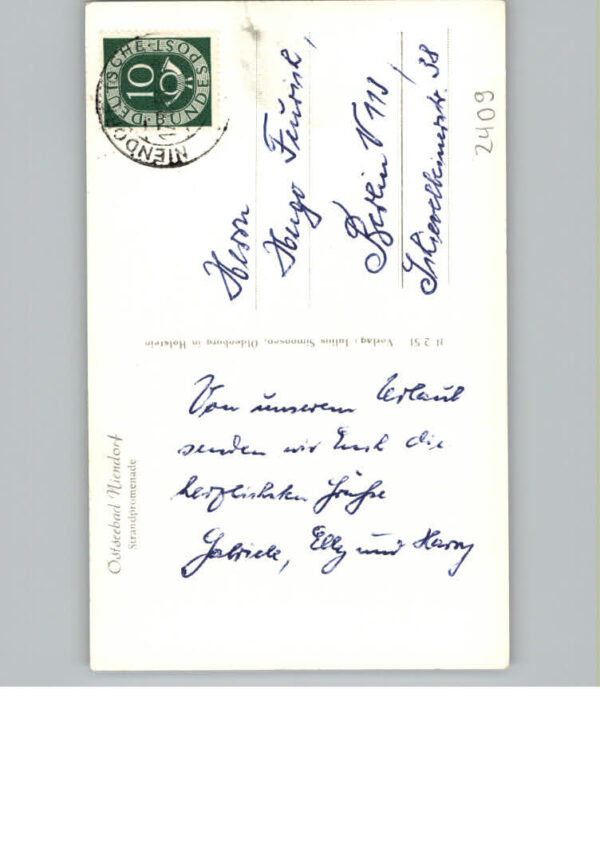 DEUTSCHE BUNDESPOST
10
NIENDO
Herrn
Hugo Feurich,
Berlin N 113,
Schivelbeinerstr. 38
2409
H 2 51 Verlag: Julius Simonsen, Oldenburg in Holstein
Von unserem Urlaub
senden wir Euch die
herzlichsten Grüße
Gabriele, Elly und Harry
Ostseebad Niendorf
Strandpromenade